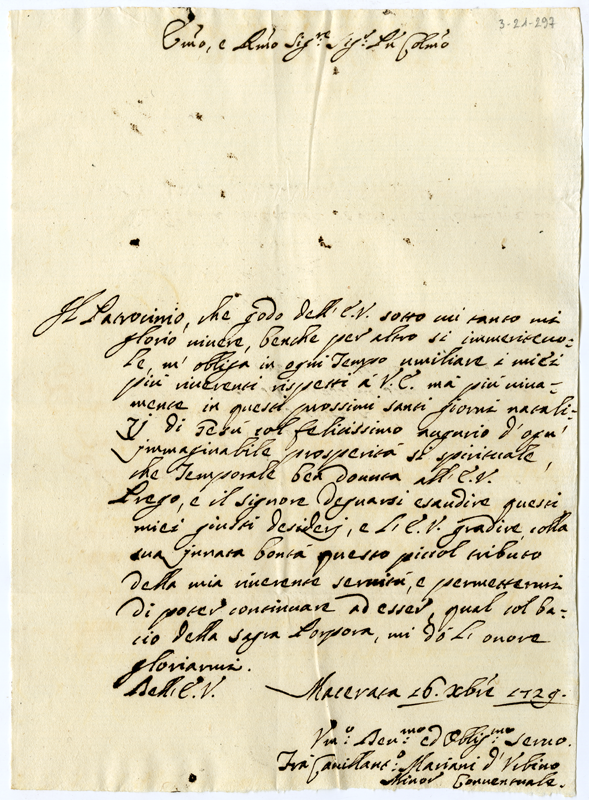 3-21-297
Emo, e Rmo Sigre Sigr Pn Colmo
Il Patrocinio, che godo dell'E.V. sotto cui tanto mi
glorio vivere, benche per altro si immeritevo-
le, m'obliga in ogni Tempo umiliare i miei
più riverenti rispetti á V.E. má più viva-
mente in questi prossimi santi giorni natali-
zij di Gesú col felicissimo augurio d'ogn'
immaginabile prosperitá sì spirituale,
che Temporale ben dovuta all'E.V.
Prego, e il Signore degnarsi esaudire questi
miei giusti desiderj, e l'E.V. gradire colla
sua innata bontá questo piccol tributo
della mia riverente servitú, e permettermi
di poter continuare ad esser, qual col ba-
cio della sagra Porpora, mi dó l'onore
gloriarmi.
Dell'E.V. Macerata 16. Xbre 1729.
Vmo: Devmo ed Obligmo servo.
Fra Mariani d'Urbino
Minor Conventuale.